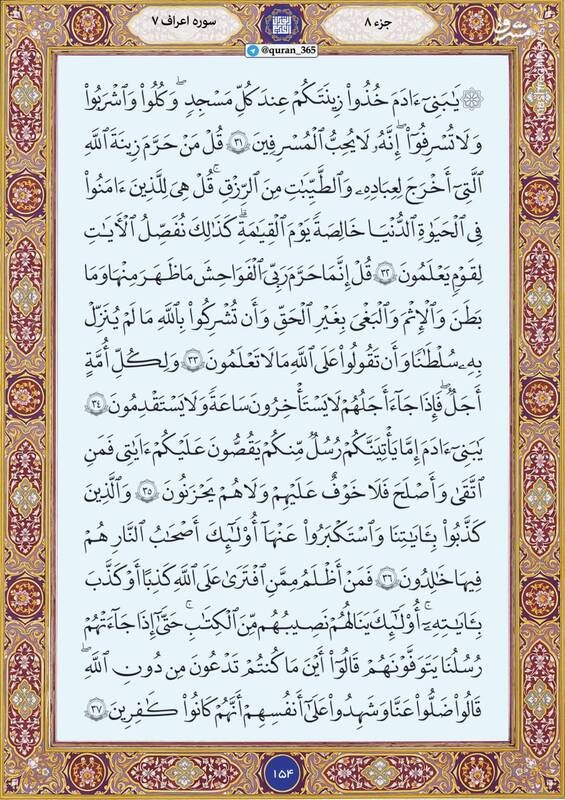 جزء ۸
سوره اعراف ۷
@quran_365
۞ يَٰبَنِىٓ ءَادَمَ خُذُوا۟ زِينَتَكُمْ عِندَ كُلِّ مَسْجِدٍ وَكُلُوا۟ وَٱشْرَبُوا۟
وَلَا تُسْرِفُوٓا۟ ۚ إِنَّهُۥ لَا يُحِبُّ ٱلْمُسْرِفِينَ ۳۱ قُلْ مَنْ حَرَّمَ زِينَةَ ٱللَّهِ
ٱلَّتِىٓ أَخْرَجَ لِعِبَادِهِۦ وَٱلطَّيِّبَٰتِ مِنَ ٱلرِّزْقِ ۚ قُلْ هِىَ لِلَّذِينَ ءَامَنُوا۟
فِى ٱلْحَيَوٰةِ ٱلدُّنْيَا خَالِصَةً يَوْمَ ٱلْقِيَٰمَةِ ۗ كَذَٰلِكَ نُفَصِّلُ ٱلْـَٔايَٰتِ
لِقَوْمٍ يَعْلَمُونَ ۳۲ قُلْ إِنَّمَا حَرَّمَ رَبِّىَ ٱلْفَوَٰحِشَ مَا ظَهَرَ مِنْهَا وَمَا
بَطَنَ وَٱلْإِثْمَ وَٱلْبَغْىَ بِغَيْرِ ٱلْحَقِّ وَأَن تُشْرِكُوا۟ بِٱللَّهِ مَا لَمْ يُنَزِّلْ
بِهِۦ سُلْطَٰنًا وَأَن تَقُولُوا۟ عَلَى ٱللَّهِ مَا لَا تَعْلَمُونَ ۳۳ وَلِكُلِّ أُمَّةٍ
أَجَلٌ ۖ فَإِذَا جَآءَ أَجَلُهُمْ لَا يَسْتَأْخِرُونَ سَاعَةً وَلَا يَسْتَقْدِمُونَ ۳۴
يَٰبَنِىٓ ءَادَمَ إِمَّا يَأْتِيَنَّكُمْ رُسُلٌ مِّنكُمْ يَقُصُّونَ عَلَيْكُمْ ءَايَٰتِى فَمَنِ
ٱتَّقَىٰ وَأَصْلَحَ فَلَا خَوْفٌ عَلَيْهِمْ وَلَا هُمْ يَحْزَنُونَ ۳۵ وَٱلَّذِينَ
كَذَّبُوا۟ بِـَٔايَٰتِنَا وَٱسْتَكْبَرُوا۟ عَنْهَآ أُو۟لَٰٓئِكَ أَصْحَٰبُ ٱلنَّارِ هُمْ
فِيهَا خَٰلِدُونَ ۳۶ فَمَنْ أَظْلَمُ مِمَّنِ ٱفْتَرَىٰ عَلَى ٱللَّهِ كَذِبًا أَوْ كَذَّبَ
بِـَٔايَٰتِهِۦٓ ۚ أُو۟لَٰٓئِكَ يَنَالُهُمْ نَصِيبُهُم مِّنَ ٱلْكِتَٰبِ ۖ حَتَّىٰٓ إِذَا جَآءَتْهُمْ
رُسُلُنَا يَتَوَفَّوْنَهُمْ قَالُوٓا۟ أَيْنَ مَا كُنتُمْ تَدْعُونَ مِن دُونِ ٱللَّهِ ۖ
قَالُوا۟ ضَلُّوا۟ عَنَّا وَشَهِدُوا۟ عَلَىٰٓ أَنفُسِهِمْ أَنَّهُمْ كَانُوا۟ كَٰفِرِينَ ۳۷
۱۵۴